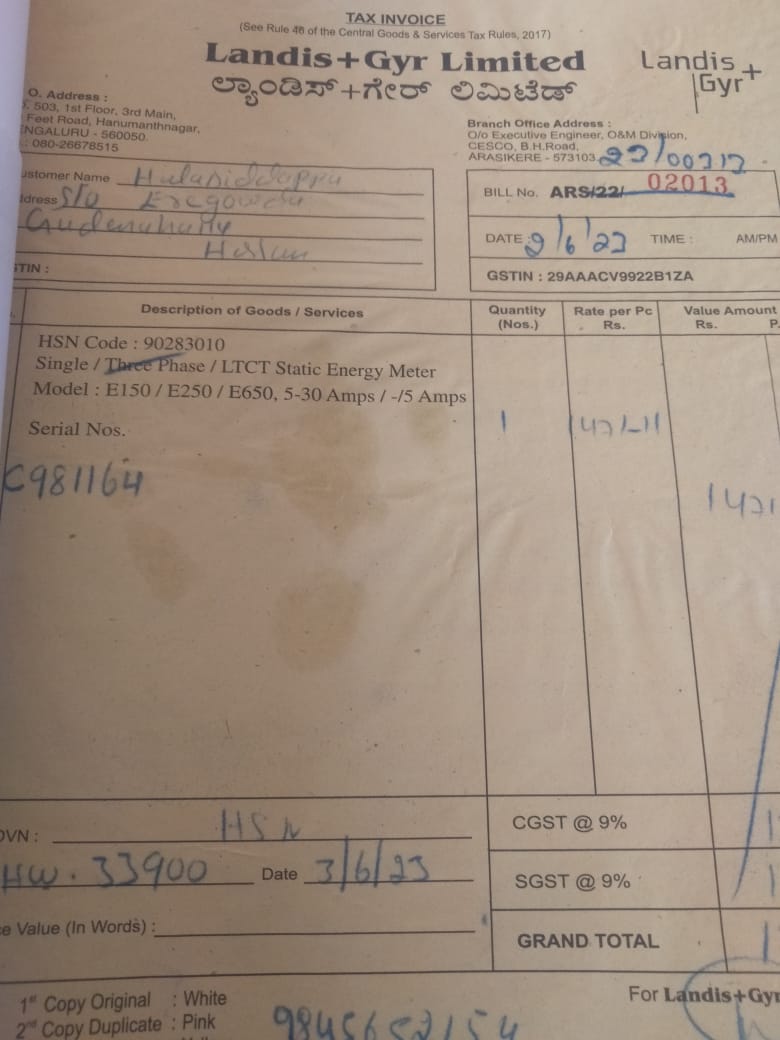 TAX INVOICE
(See Rule 46 of the Central Goods & Services Tax Rules, 2017)
Landis+Gyr Limited
ಲ್ಯಾಂಡಿಸ್+ಗೇರ್ ಲಿಮಿಟೆಡ್
Landis
Gyr+
O. Address :
503, 1st Floor, 3rd Main,
Feet Road, Hanumanthnagar,
NGALURU - 560050.
: 080-26678515
Branch Office Address :
O/o Executive Engineer, O&M Division,
CESCO, B.H.Road,
ARASIKERE - 573103.
ustomer Name
dress S/o
TIN :
BILL No. ARS/22/ 02013
DATE : 9/6/23 TIME : AM/PM
GSTIN : 29AAACV9922B1ZA
Description of Goods / Services
Quantity (Nos.)
Rate per Pc Rs.
Value Amount Rs. P.
HSN Code : 90283010
Single / Three Phase / LTCT Static Energy Meter
Model : E150 / E250 / E650, 5-30 Amps / -/5 Amps
Serial Nos.
1
C981164
OVN : HSN
HW. 33900 Date 3/6/23
e Value (In Words) :
CGST @ 9%
SGST @ 9%
GRAND TOTAL
1st Copy Original : White
2nd Copy Duplicate : Pink
For Landis+Gyr
9845652154